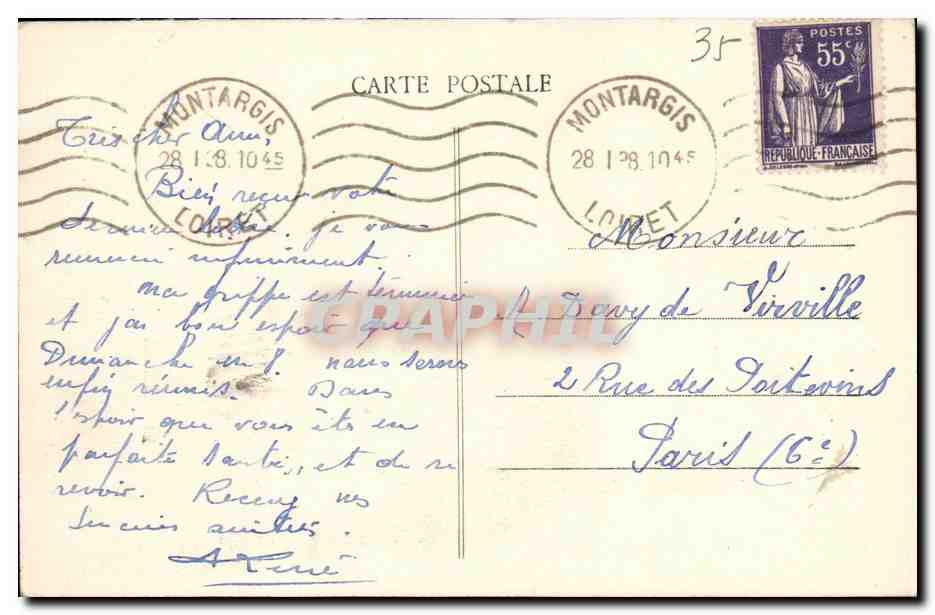 35
POSTES
55c
RÉPUBLIQUE-FRANÇAISE
CARTE POSTALE
MONTARGIS
28 I 38.1045
LOIRET
MONTARGIS
28 I 38.1045
LOIRET
Très cher Ami,
Bien reçu votre
dernière lettre. je vous
remercie infiniment.
Ma grippe est terminée
et j'ai bon espoir que
Dimanche en 8. nous serons
enfin réunis. Dans
l'espoir que vous êtes en
parfaite santé, et de se
revoir. Recevez nos
sincères amitiés.
René
Monsieur
Davy de Virville
2 Rue des Poitevins
Paris (6e)
CPAPHIL